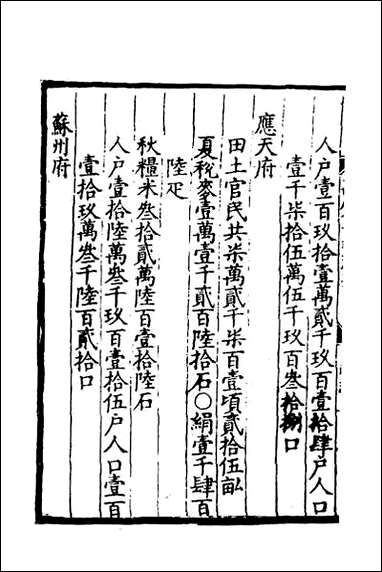 人户壹百玖拾壹萬貳千玖百壹拾肆户人口
壹千柒拾伍萬伍千玖百叁拾捌口
應天府
田土官民共柒萬貳千柒百壹頃貳拾伍畝
夏税麥壹萬壹千貳百陸拾石〇絹壹千肆百
陸疋
秋糧米叁拾貳萬陸百壹拾陸石
人户壹拾陸萬叁千玖百壹拾伍户人口壹百
壹拾玖萬叁千陸百貳拾口
蘇州府